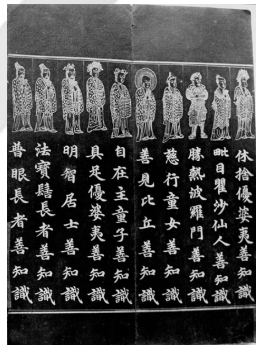 休捨優婆夷善知識
毗目瞿沙仙人善知識
勝熱波羅門善知識
慈行童女善知識
善見比丘善知識
自在主童子善知識
具足優婆夷善知識
明智居士善知識
法寶髻長者善知識
普眼長者善知識